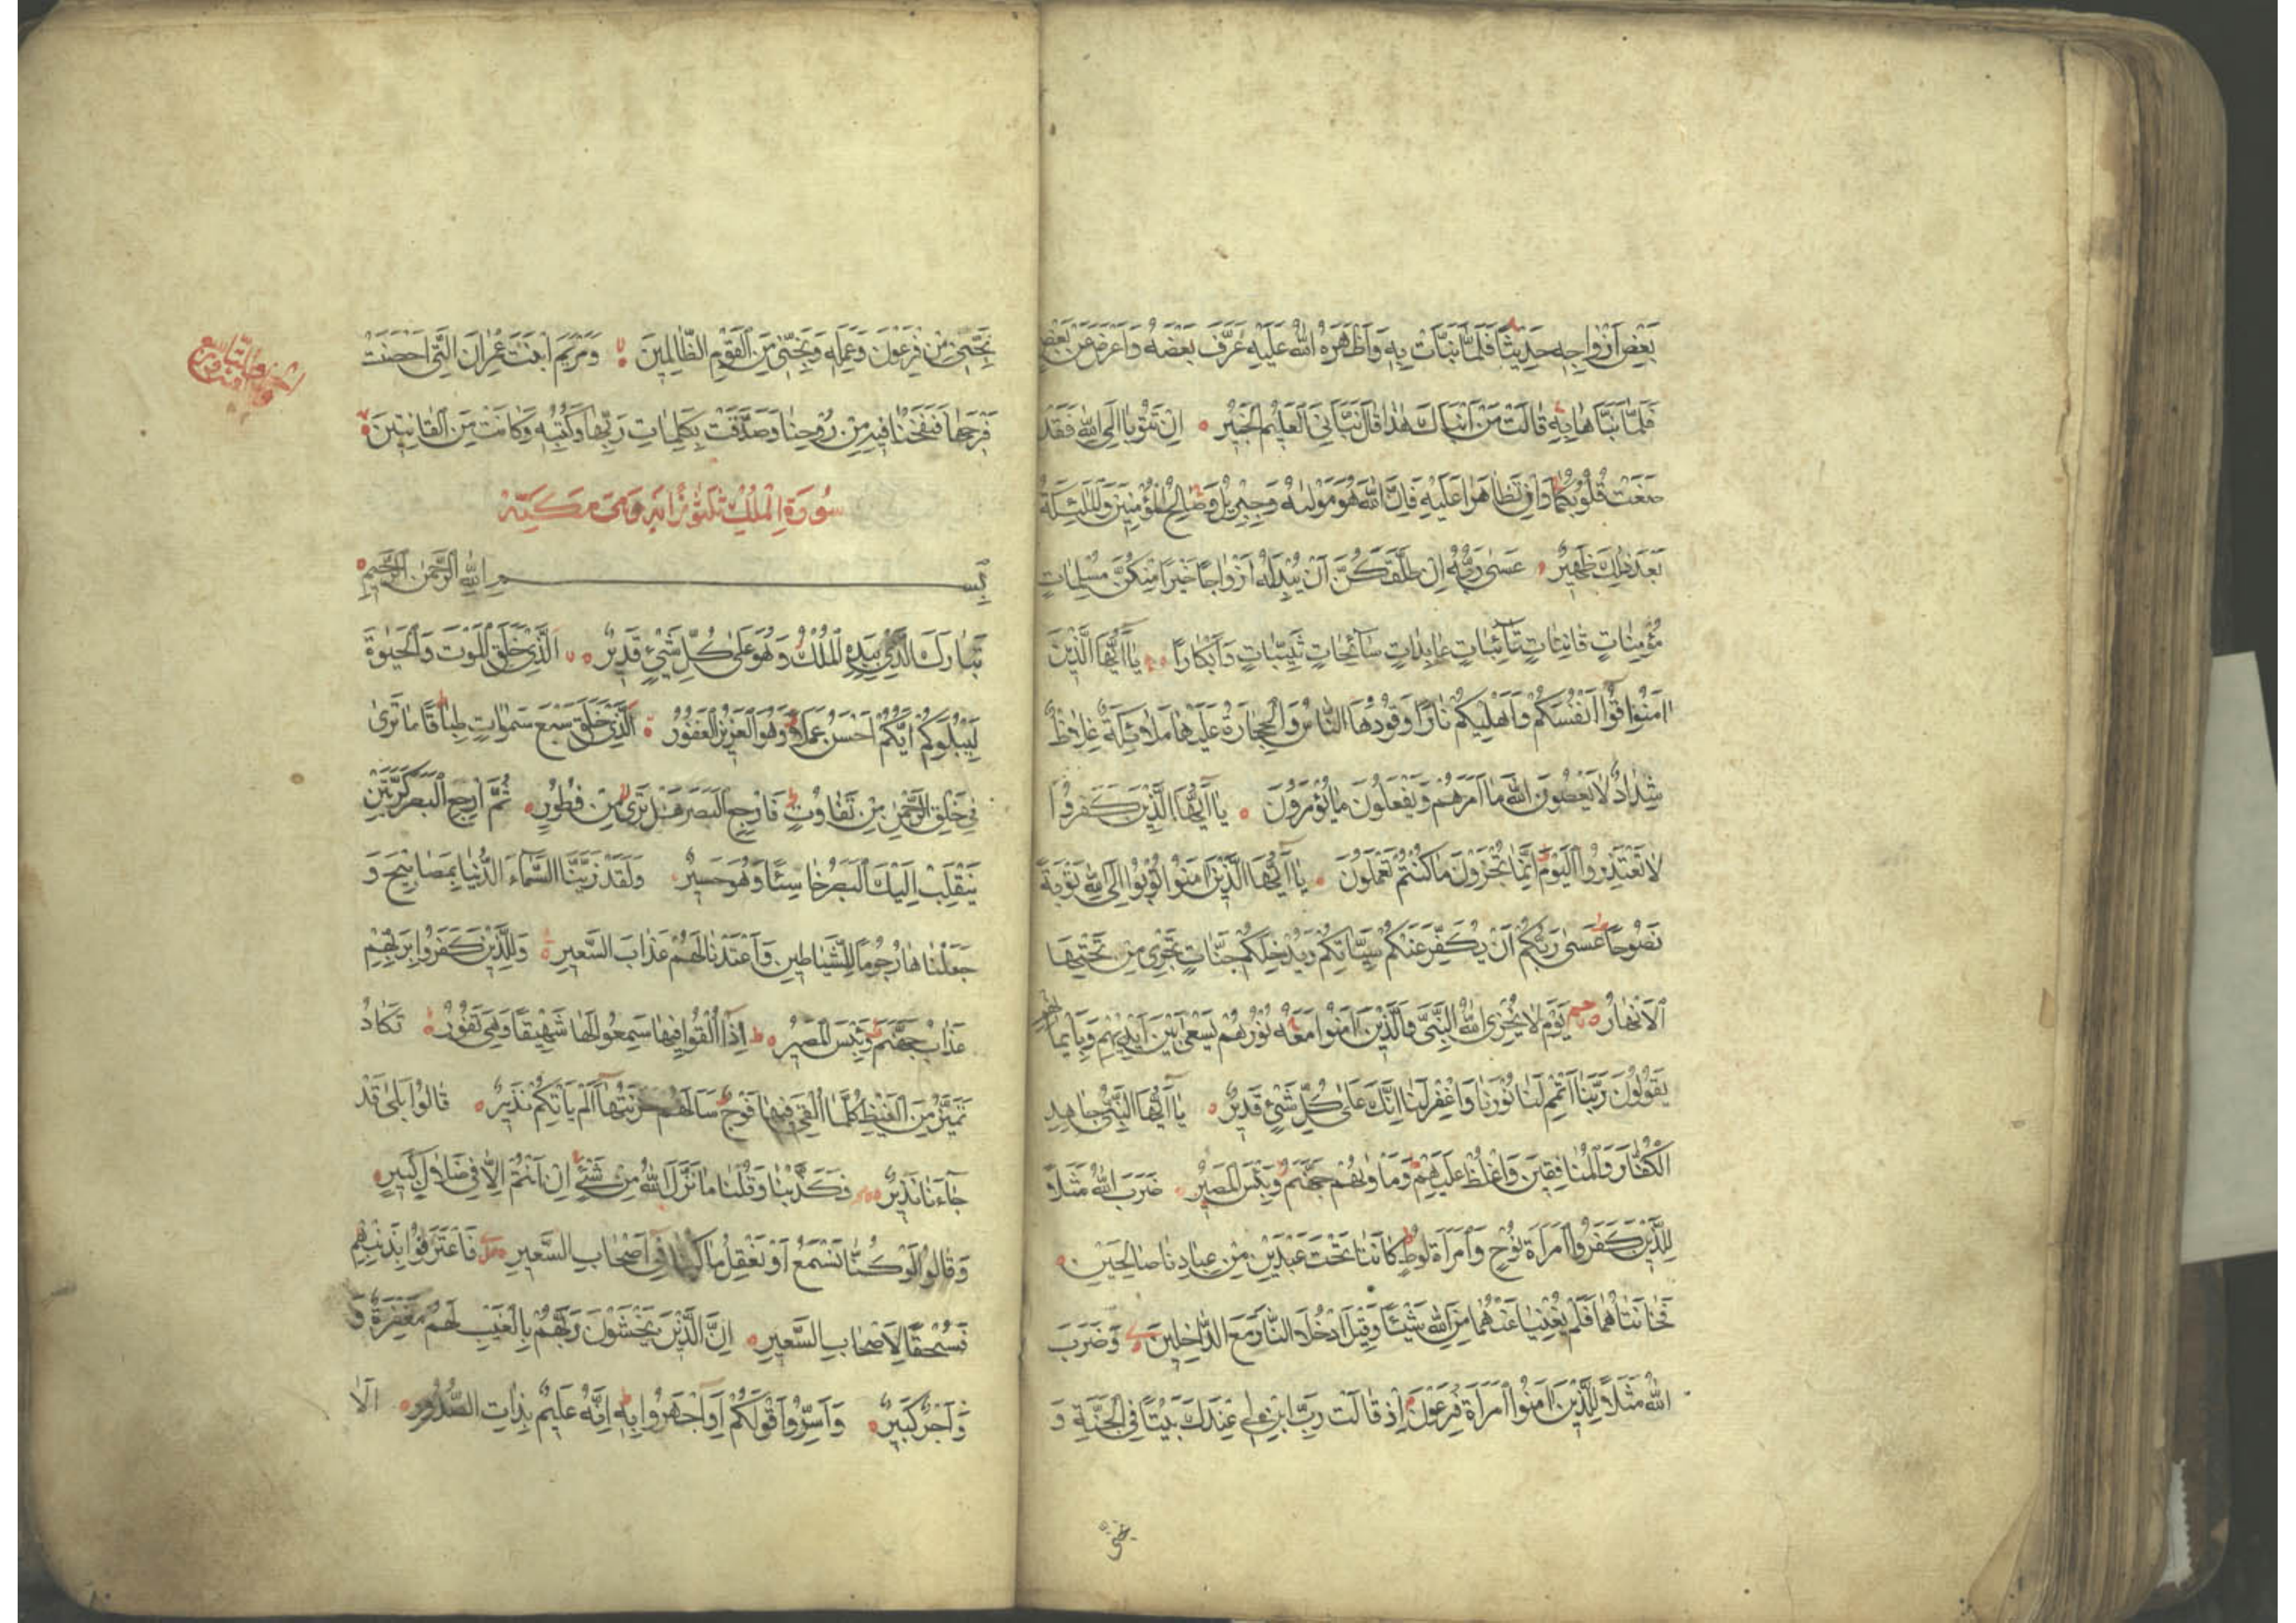 بَعْضِ اَزْوَاجِهِ حَدِيثًا فَلَمَّا نَبَّاَتْ بِهِ وَاَظْهَرَهُ اللهُ عَلَيْهِ عَرَّفَ بَعْضَهُ وَاَعْرَضَ عَنْ بَعْضٍ
فَلَمَّا نَبَّاَهَا بِهِ قَالَتْ مَنْ اَنْبَاَكَ هٰذَا قَالَ نَبَّاَنِىَ الْعَلِيمُ الْخَبِيرُ اِنْ تَتُوبَا اِلَى اللهِ فَقَدْ
صَغَتْ قُلُوبُكُمَا وَاِنْ تَظَاهَرَا عَلَيْهِ فَاِنَّ اللهَ هُوَ مَوْلٰيهُ وَجِبْرِيلُ وَصَالِحُ الْمُؤْمِنِينَ وَالْمَلٰئِكَةُ
بَعْدَ ذٰلِكَ ظَهِيرٌ عَسٰى رَبُّهُ اِنْ طَلَّقَكُنَّ اَنْ يُبْدِلَهُ اَزْوَاجًا خَيْرًا مِنْكُنَّ مُسْلِمَاتٍ
مُؤْمِنَاتٍ قَانِتَاتٍ تَآئِبَاتٍ عَابِدَاتٍ سَآئِحَاتٍ ثَيِّبَاتٍ وَاَبْكَارًا يَآ اَيُّهَا الَّذِينَ
اٰمَنُوا قُوآ اَنْفُسَكُمْ وَاَهْلِيكُمْ نَارًا وَقُودُهَا النَّاسُ وَالْحِجَارَةُ عَلَيْهَا مَلَائِكَةٌ غِلَاظٌ
شِدَادٌ لَا يَعْصُونَ اللهَ مَا اَمَرَهُمْ وَيَفْعَلُونَ مَا يُؤْمَرُونَ يَآ اَيُّهَا الَّذِينَ كَفَرُوا
لَا تَعْتَذِرُوا الْيَوْمَ اِنَّمَا تُجْزَوْنَ مَا كُنْتُمْ تَعْمَلُونَ يَآ اَيُّهَا الَّذِينَ اٰمَنُوا تُوبُوا اِلَى اللهِ تَوْبَةً
نَصُوحًا عَسٰى رَبُّكُمْ اَنْ يُكَفِّرَ عَنْكُمْ سَيِّاٰتِكُمْ وَيُدْخِلَكُمْ جَنَّاتٍ تَجْرِى مِنْ تَحْتِهَا
الْاَنْهَارُ يَوْمَ لَا يُخْزِى اللهُ النَّبِىَّ وَالَّذِينَ اٰمَنُوا مَعَهُ نُورُهُمْ يَسْعٰى بَيْنَ اَيْدِيهِمْ وَبِاَيْمَانِهِمْ
يَقُولُونَ رَبَّنَا اَتْمِمْ لَنَا نُورَنَا وَاغْفِرْ لَنَا اِنَّكَ عَلٰى كُلِّ شَىْءٍ قَدِيرٌ يَآ اَيُّهَا النَّبِىُّ جَاهِدِ
الْكُفَّارَ وَالْمُنَافِقِينَ وَاغْلُظْ عَلَيْهِمْ وَمَاْوٰيهُمْ جَهَنَّمُ وَبِئْسَ الْمَصِيرُ ضَرَبَ اللهُ مَثَلًا
لِلَّذِينَ كَفَرُوا امْرَاَةَ نُوحٍ وَامْرَاَةَ لُوطٍ كَانَتَا تَحْتَ عَبْدَيْنِ مِنْ عِبَادِنَا صَالِحَيْنِ
فَخَانَتَاهُمَا فَلَمْ يُغْنِيَا عَنْهُمَا مِنَ اللهِ شَيْئًا وَقِيلَ ادْخُلَا النَّارَ مَعَ الدَّاخِلِينَ وَضَرَبَ
اللهُ مَثَلًا لِلَّذِينَ اٰمَنُوا امْرَاَةَ فِرْعَوْنَ اِذْ قَالَتْ رَبِّ ابْنِ لِى عِنْدَكَ بَيْتًا فِى الْجَنَّةِ وَ
نَجِّنِى
نَجِّنِى مِنْ فِرْعَوْنَ وَعَمَلِهِ وَنَجِّنِى مِنَ الْقَوْمِ الظَّالِمِينَ وَمَرْيَمَ ابْنَتَ عِمْرَانَ الَّتِى اَحْصَنَتْ
فَرْجَهَا فَنَفَخْنَا فِيهِ مِنْ رُوحِنَا وَصَدَّقَتْ بِكَلِمَاتِ رَبِّهَا وَكُتُبِهِ وَكَانَتْ مِنَ الْقَانِتِينَ
سُورَةُ الْمُلْكِ ثَلٰثُونَ اٰيَة وَهِىَ مَكِّيَّة
بِسْمِ اللهِ الرَّحْمٰنِ الرَّحِيمِ
تَبَارَكَ الَّذِى بِيَدِهِ الْمُلْكُ وَهُوَ عَلٰى كُلِّ شَىْءٍ قَدِيرٌ اَلَّذِى خَلَقَ الْمَوْتَ وَالْحَيٰوةَ
لِيَبْلُوَكُمْ اَيُّكُمْ اَحْسَنُ عَمَلًا وَهُوَ الْعَزِيزُ الْغَفُورُ اَلَّذِى خَلَقَ سَبْعَ سَمٰوَاتٍ طِبَاقًا مَا تَرٰى
فِى خَلْقِ الرَّحْمٰنِ مِنْ تَفَاوُتٍ فَارْجِعِ الْبَصَرَ هَلْ تَرٰى مِنْ فُطُورٍ ثُمَّ ارْجِعِ الْبَصَرَ كَرَّتَيْنِ
يَنْقَلِبْ اِلَيْكَ الْبَصَرُ خَاسِئًا وَهُوَ حَسِيرٌ وَلَقَدْ زَيَّنَّا السَّمَآءَ الدُّنْيَا بِمَصَابِيحَ وَ
جَعَلْنَاهَا رُجُومًا لِلشَّيَاطِينِ وَاَعْتَدْنَا لَهُمْ عَذَابَ السَّعِيرِ وَلِلَّذِينَ كَفَرُوا بِرَبِّهِمْ
عَذَابُ جَهَنَّمَ وَبِئْسَ الْمَصِيرُ اِذَآ اُلْقُوا فِيهَا سَمِعُوا لَهَا شَهِيقًا وَهِىَ تَفُورُ تَكَادُ
تَمَيَّزُ مِنَ الْغَيْظِ كُلَّمَا اُلْقِىَ فِيهَا فَوْجٌ سَاَلَهُمْ خَزَنَتُهَآ اَلَمْ يَاْتِكُمْ نَذِيرٌ قَالُوا بَلٰى قَدْ
جَآءَنَا نَذِيرٌ فَكَذَّبْنَا وَقُلْنَا مَا نَزَّلَ اللهُ مِنْ شَىْءٍ اِنْ اَنْتُمْ اِلَّا فِى ضَلَالٍ كَبِيرٍ
وَقَالُوا لَوْ كُنَّا نَسْمَعُ اَوْ نَعْقِلُ مَا كُنَّا فِى اَصْحَابِ السَّعِيرِ فَاعْتَرَفُوا بِذَنْبِهِمْ
فَسُحْقًا لِاَصْحَابِ السَّعِيرِ اِنَّ الَّذِينَ يَخْشَوْنَ رَبَّهُمْ بِالْغَيْبِ لَهُمْ مَغْفِرَةٌ وَ
وَاَجْرٌ كَبِيرٌ وَاَسِرُّوا قَوْلَكُمْ اَوِ اجْهَرُوا بِهِ اِنَّهُ عَلِيمٌ بِذَاتِ الصُّدُورِ اَلَا